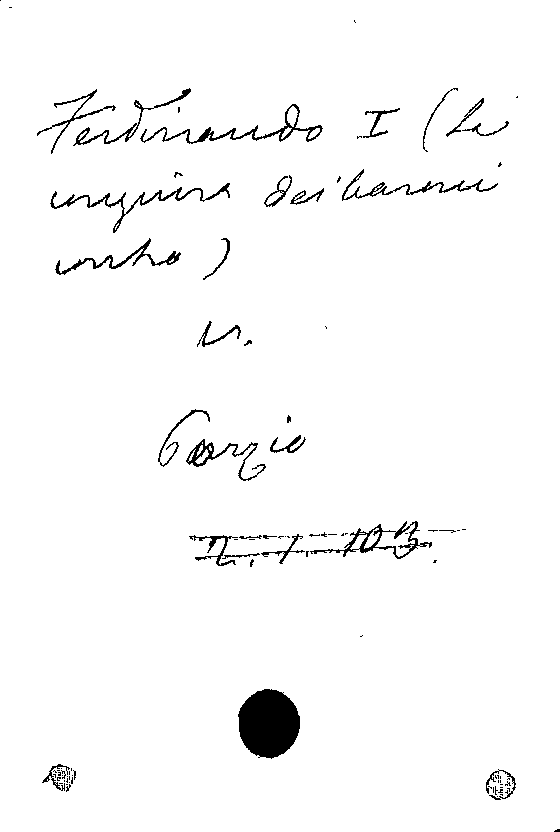 Ferdinando I (La
congiura dei baroni
contro)
v.
Porzio
2. 1. 103.